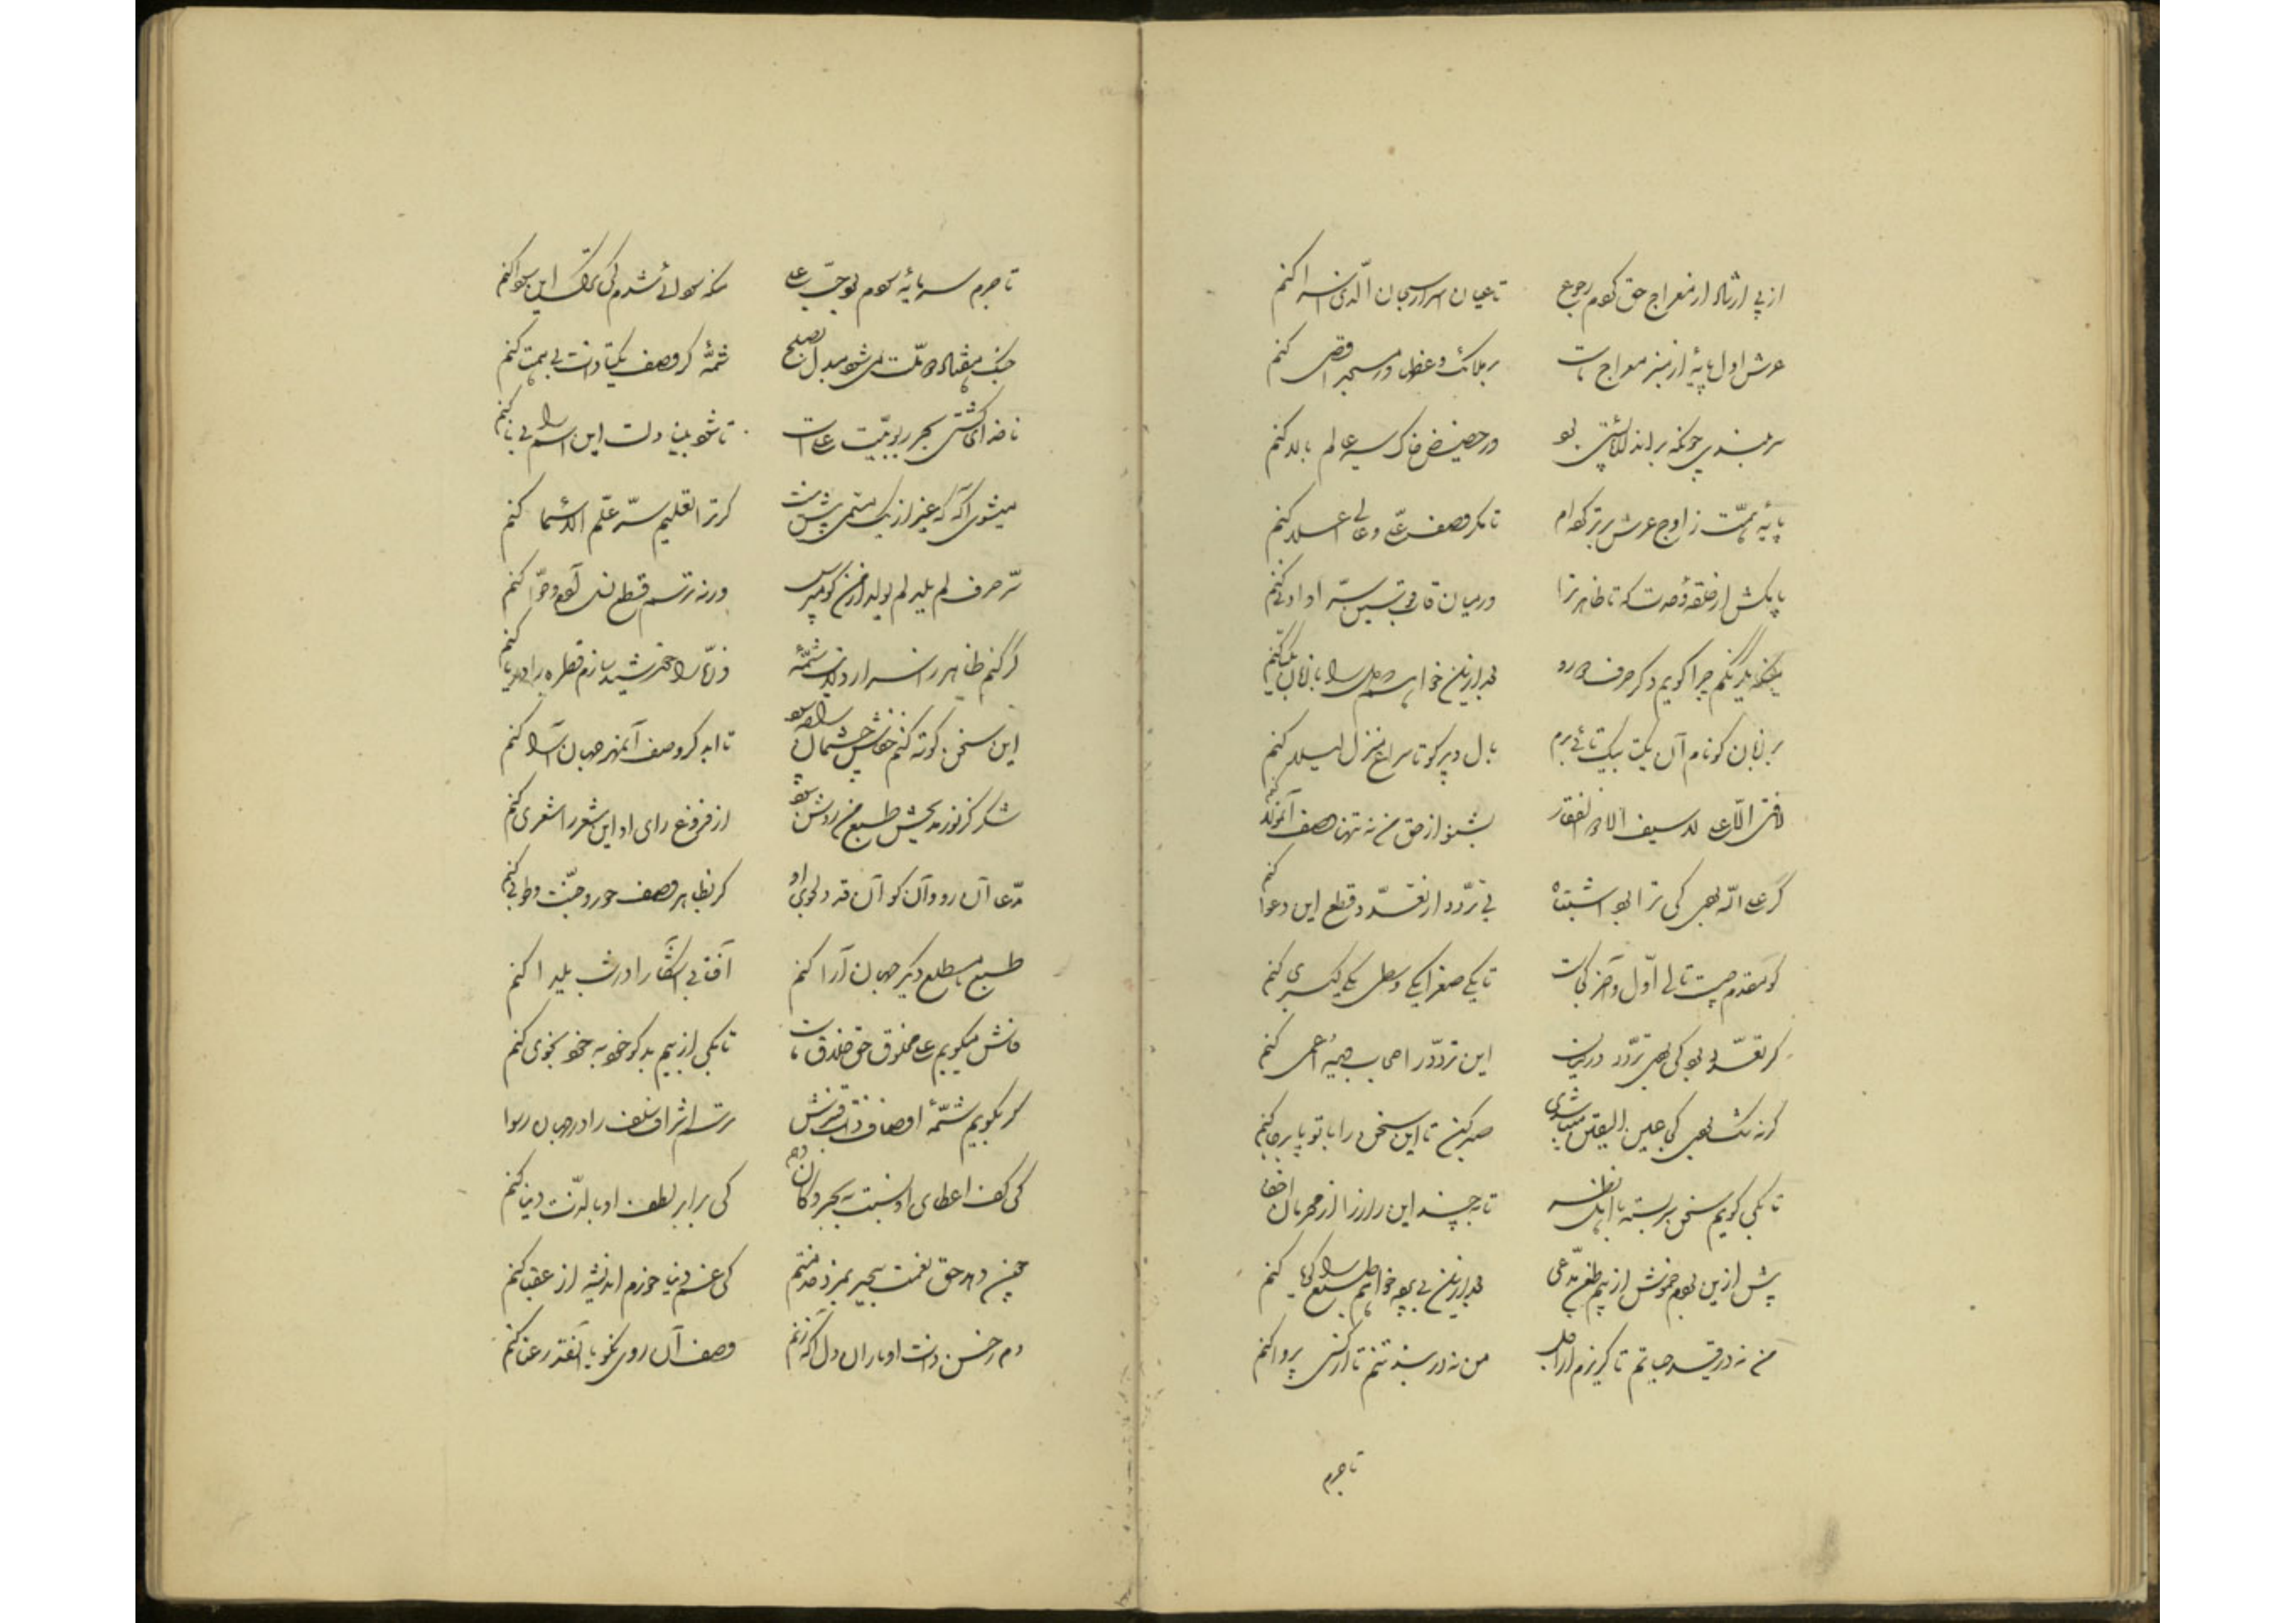 از پی ارشاد از معراج حق کردم رجوع تا عیان اسرار سبحان الذی اسرا کنم
عرش اول پایهٔ از منبر معراج ماست بر ملائک وعظ در مسجد اقصی کنم
سربلندی چونکه بر در حضیض خاک سیر عالم بالا کنم
پایهٔ همت ز اوج عرش برتر کرده‌ام تا مگر وصف علی عالی اعلا کنم
پا بکش از حلقهٔ وحدت که تا ظاهر ترا در میان قاب قوسین سر او ادنی کنم
چرا گویم دگر حرف بعد ازین خواهم
بر زبان کو نام آن یکتا به یکتائی برم بال و پر کو تا سراغ منزل کنم
لافتی الا علی لا سیف الا ذوالفقار بشنو از حق من نه تنها وصف آنمولا کنم
گر علی الله بود کی ترا بود اشتباه بی تردد از تعدد قطع این دعوا کنم
کو مقدم چیست تالی اول و آخر کجاست تا یکی صغرا یکی وسطی یکی کبری کنم
گر تعدد بود کی بودی تردد در میان این تردد را حساب
گر نه شک بودی کی عین الیقین میشدی صبر کن تا این سخن را با تو پا برجا کنم
تا بکی گویم سخن سربسته با اهل نظر تا بچند این راز را از محرمان اخفا کنم
پیش ازین بودم خموش از بیم طعن مدعی بعد ازین بی پرده خواهم طبع را گویا کنم
من نه در قید حیاتم تا گریزم از اجل من نه در بند تنم تا از کسی پروا کنم
تاجرم
تاجرم سرمایهٔ سودم بود حب علی سودائی شدم کی ترک این سودا کنم
جنگ هفتاد و دو ملت میشود مبدل بصلح شمهٔ گر وصف یکتا ذات بی همتا کنم
ناخدای کشتی بحر ربوبیت علیست تا شود بینا دلت این اسم را کنم
میشوی آگه که غیر از یک مسمی بیش نیست گر ترا تعلیم سر علم الاسما کنم
سر حرف لم یلد لم یولد از من گو مپرس ورنه ترسم قطع نسل آدم و حوا کنم
گر کنم ظاهر ز اسرار شمهٔ ذره را خورشید سازم قطره را دریا کنم
این سخن کوته کنم خفاش چشمان را چه سود تا ابد گر وصف آنمهر جهان آرا کنم
شکر کز نور مدیحش طبع من روشن بود از فروغ رای او این شعر را شعری کنم
مدعا آن رو و آن کو آن قد دلجوی او گر بظاهر وصف حور و جنت و طوبی کنم
طبع مطلع دیگر جهان آرا کنم آفتابی آشکارا در شب یلدا کنم
فاش میگویم علی مخلوق حق خلاق ماست تا بکی از بیم بدگو خود به خود نجوی کنم
گر بگویم شمهٔ اوصاف ذات قنبرش اشراف سلف را در جهان رسوا
کی کف اعطای او نسبت به بحر و کان دهم کی برابر لطف او با لذت دنیا کنم
چون دهد حق نعمت بیحد بمزد خدمتم کی غم دنیا خورم اندیشه از عقبی کنم
دم ز حسن ذات او با آن دل آگه زنم وصف آن روی نکو با آنقد رعنا کنم